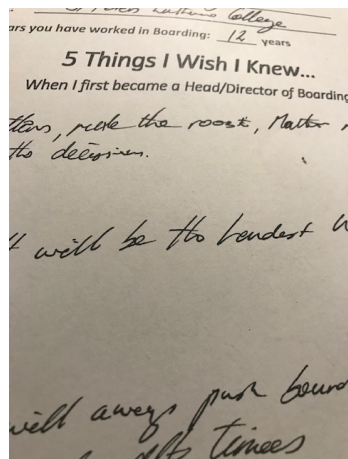 St Peters Lutheran College
ars you have worked in Boarding: 12 years
5 Things I Wish I Knew...
When I first became a Head/Director of Boarding
rule the roost, Matter
the decisions.
will be the hardest
will aways push bound
times